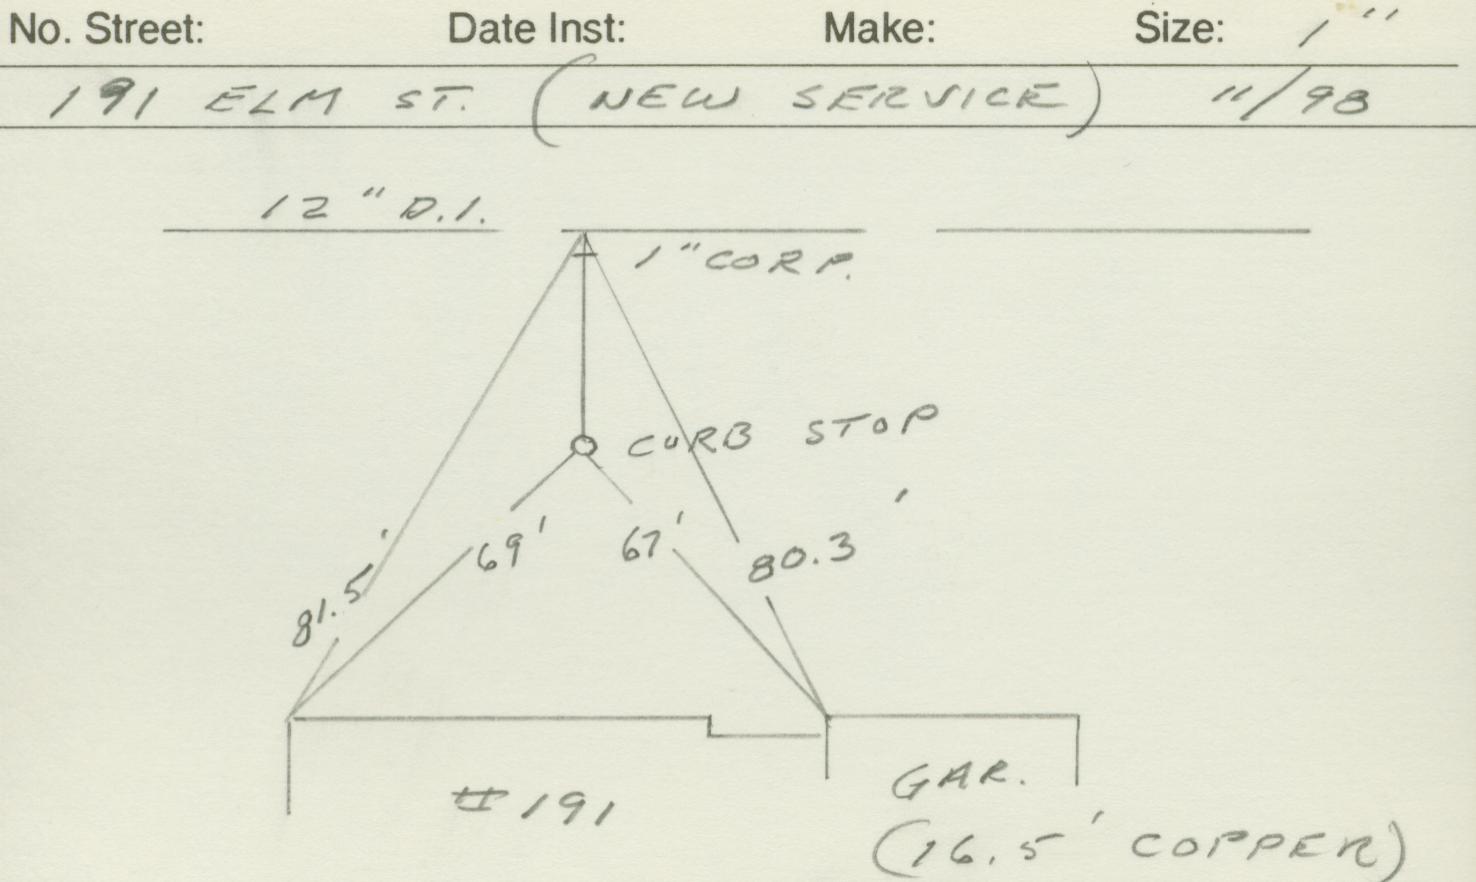 No. Street: Date Inst: Make: Size: 1"
191 ELM ST. (NEW SERVICE) 11/98
12" D.I.
1" CORP.
CURB STOP
69' 67' 80.3'
81.5'
GAR.
#191
(16.5' COPPER)